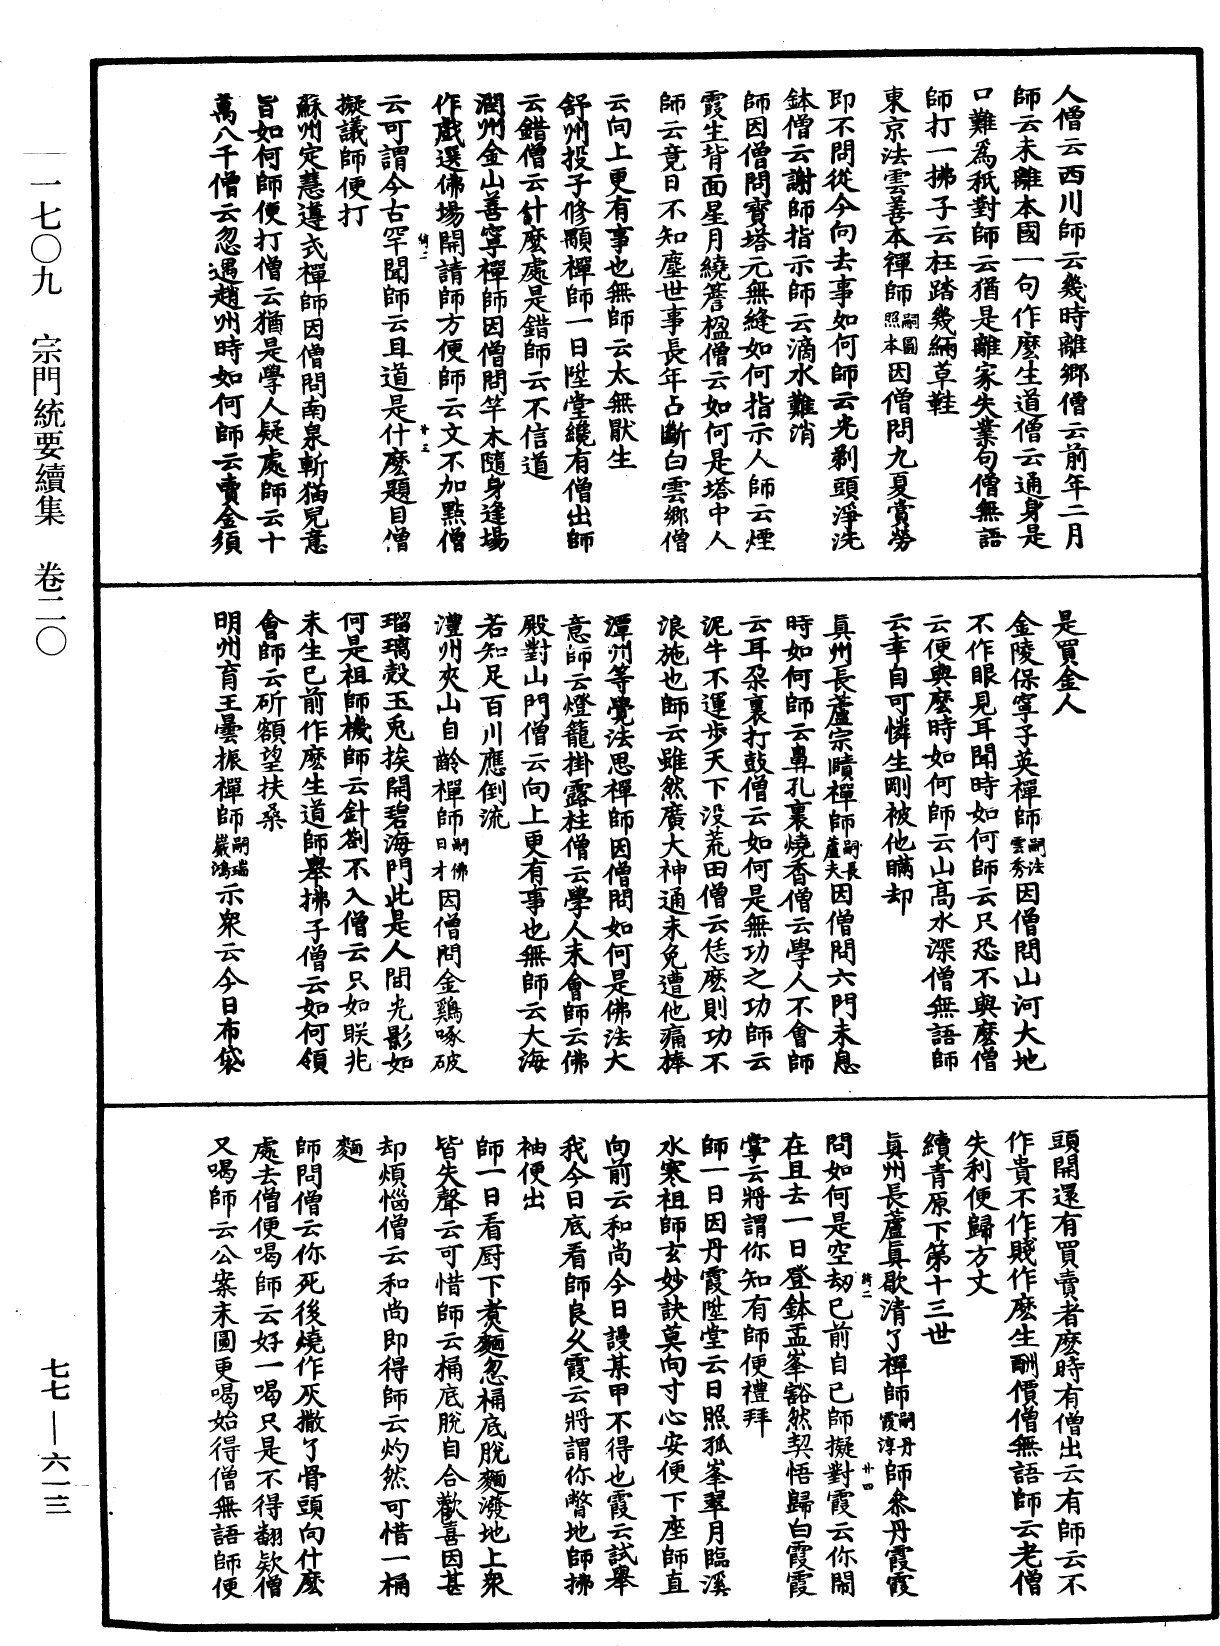 人僧云西川師云幾時離鄉僧云前年二月
師云未離本國一句作麼生道僧云通身是
口難為秖對師云猶是離家失業句僧無語
師打一拂子云枉踏幾緉草鞋
東京法雲善本禪師嗣圓照本因僧問九夏賞勞
即不問從今向去事如何師云光剃頭淨洗
鉢僧云謝師指示師云滴水難消
師因僧問寶塔元無縫如何指示人師云煙
霞生背面星月繞簷楹僧云如何是塔中人
師云竟日不知塵世事長年占斷白雲鄉僧
云向上更有事也無師云太無猒生
舒州投子修顒禪師一日陞堂纔有僧出師
云錯僧云什麼處是錯師云不信道
潤州金山善寧禪師因僧問竿木隨身逢場
作戲選佛場開請師方便師云文不加點僧
云可謂今古罕聞師云且道是什麼題目僧
擬議師便打
蘇州定慧遵式禪師因僧問南泉斬猫兒意
旨如何師便打僧云猶是學人疑處師云十
萬八千僧云忽遇趙州時如何師云賣金須
是買金人
金陵保寧子英禪師嗣法雲秀因僧問山河大地
不作眼見耳聞時如何師云只恐不與麼僧
云便與麼時如何師云山高水深僧無語師
云幸自可憐生剛被他瞞却
真州長蘆宗賾禪師嗣長蘆夫因僧問六門未息
時如何師云鼻孔裏燒香僧云學人不會師
云耳朶裏打鼓僧云如何是無功之功師云
泥牛不運步天下没荒田僧云恁麼則功不
浪施也師云雖然廣大神通未免遭他痛捧
潭州等覺法思禪師因僧問如何是佛法大
意師云燈籠掛露柱僧云學人未會師云佛
殿對山門僧云向上更有事也無師云大海
若知足百川應倒流
澧州夾山自齡禪師嗣佛日才因僧問金鷄啄破
瑠璃殼玉兎挨開碧海門此是人間光影如
何是祖師機師云針劄不入僧云只如朕兆
未生已前作麼生道師舉拂子僧云如何領
會師云斫額望扶桑
明州育王曇振禪師嗣瑞巖鴻示衆云今日布袋
頭開還有買賣者麼時有僧出云有師云不
作貴不作賤作麼生酬價僧無語師云老僧
失利便歸方丈
續青原下第十三世
真州長蘆真歇清了禪師嗣丹霞淳師參丹霞霞
問如何是空劫已前自己師擬對霞云你鬧
在且去一日登鉢盂峯豁然契悟歸白霞霞
掌云將謂你知有師便禮拜
師一日因丹霞陞堂云日照孤峯翠月臨溪
水寒祖師玄妙訣莫向寸心安便下座師直
向前云和尚今日謾某甲不得也霞云試舉
我今日底看師良久霞云將謂你瞥地師拂
袖便出
師一日看厨下煮麵忽桶底脫麵潑地上衆
皆失聲云可惜師云桶底脫自合歡喜因甚
却煩惱僧云和尚即得師云灼然可惜一桶
麵
師問僧云你死後燒作灰撒了骨頭向什麼
處去僧便喝師云好一喝只是不得翻欵僧
又喝師云公案未圓更喝始得僧無語師便
一七〇九　宗門統要續集　卷二〇
七七—六一三